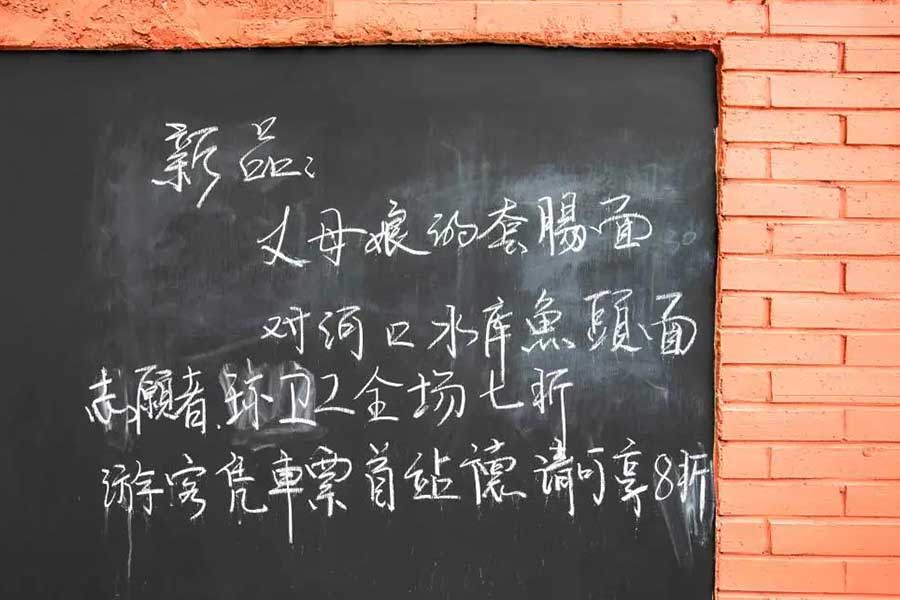 新品:
丈母娘的套腸面
对河口水库魚頭面
志願者.环卫全场七折
游客凭車票首站德清可享8折